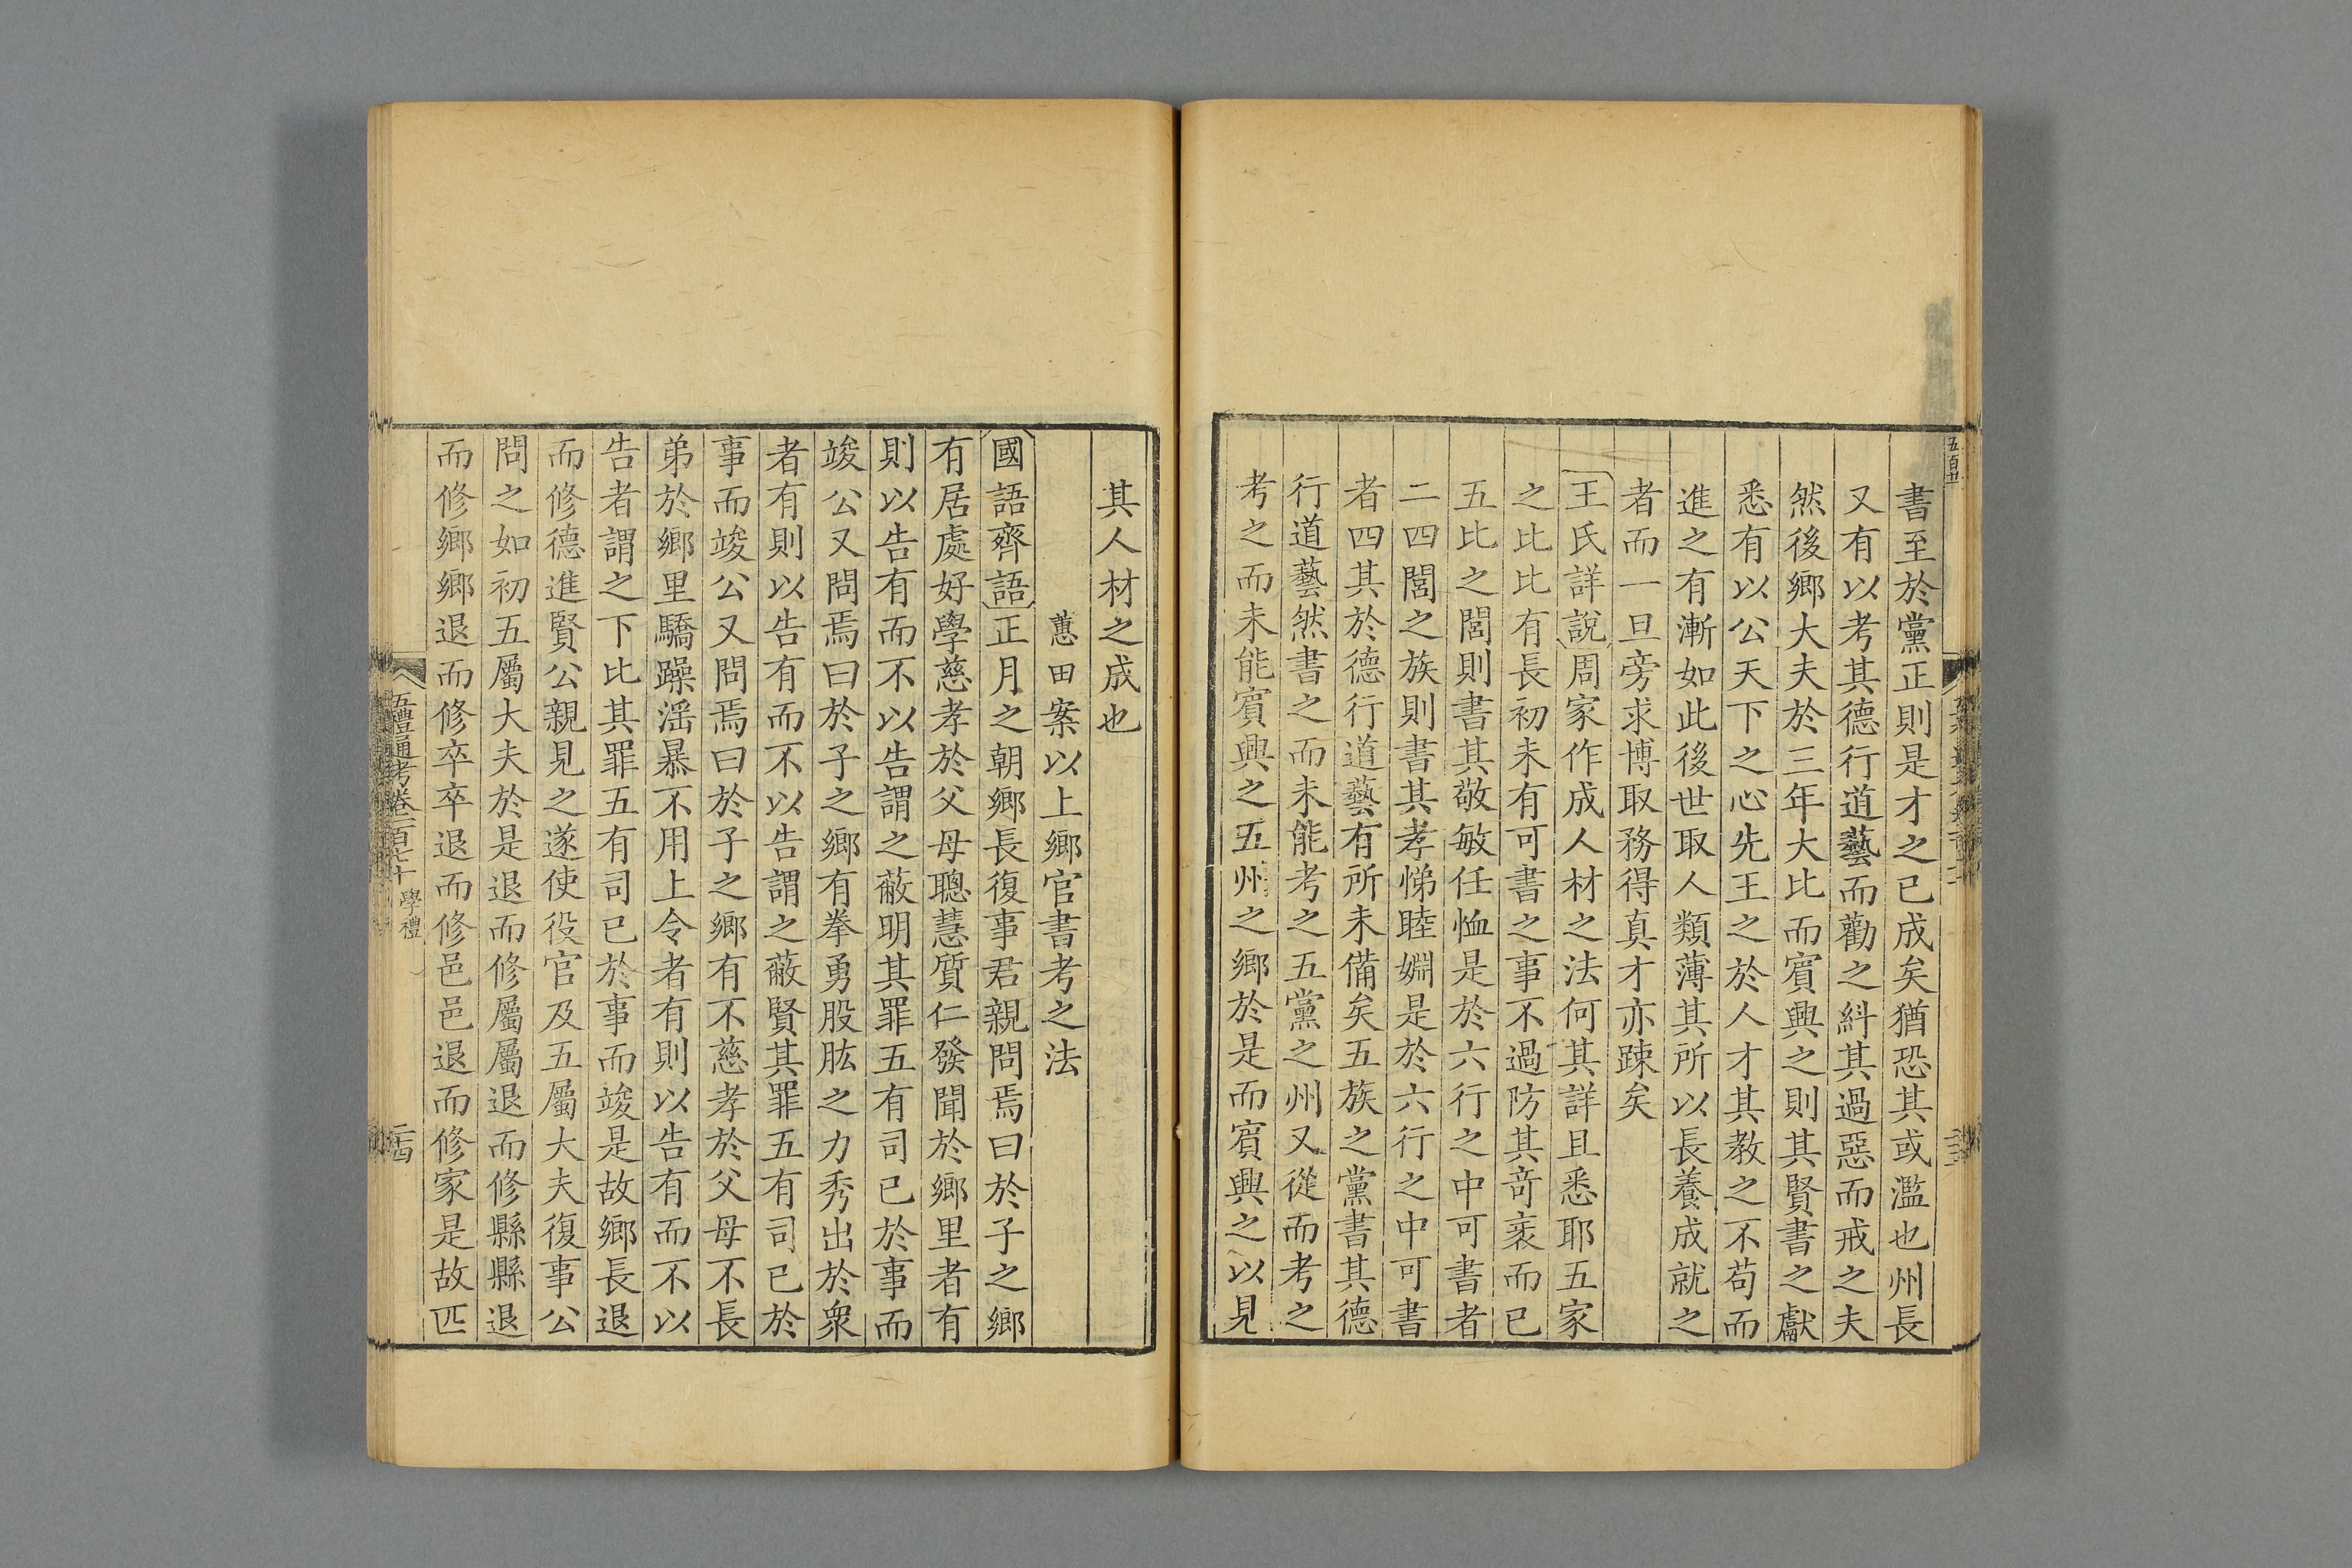 書至於黨正則是才之已成矣猶恐其或濫也州長
又有以考其德行道藝而勸之糾其過惡而戒之夫
然後鄉大夫於三年大比而賓興之則其賢書之獻
悉有以公天下之心先王之於人才其教之不苟而
進之有漸如此後世取人類薄其所以長養成就之
者而一旦旁求博取務得真才亦踈矣
王氏詳說周家作成人材之法何其詳且悉耶五家
之比比有長初未有可書之事不過防其竒衺而已
五比之閭則書其敬敏任恤是於六行之中可書者
二四閭之族則書其孝悌睦婣是於六行之中可書
者四其於德行道藝有所未備矣五族之黨書其德
行道藝然書之而未能考之五黨之州又從而考之
考之而未能賓興之五州之鄉於是而賓興之以見
其人材之成也
蕙田案以上鄉官書考之法
國語齊語正月之朝鄉長復事君親問焉曰於子之鄉
有居處好學慈孝於父母聰慧質仁發聞於鄉里者有
則以告有而不以告謂之蔽明其罪五有司已於事而
竣公又問焉曰於子之鄉有拳勇股肱之力秀出於衆
者有則以告有而不以告謂之蔽賢其罪五有司已於
事而竣公又問焉曰於子之鄉有不慈孝於父母不長
弟於鄉里驕躁滛暴不用上令者有則以告有而不以
告者謂之下比其罪五有司已於事而竣是故鄉長退
而修德進賢公親見之遂使役官及五屬大夫復事公
問之如初五屬大夫於是退而修屬屬退而修縣縣退
而修鄉鄉退而修卒卒退而修邑邑退而修家是故匹
五禮通考卷一百七十 學禮